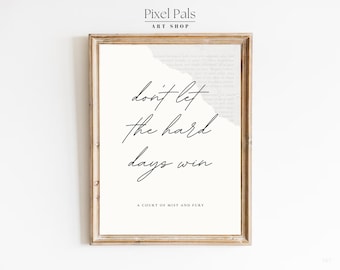 Pixel Pals
ART SHOP
don't let
the hard
days win
A COURT OF MIST AND FURY